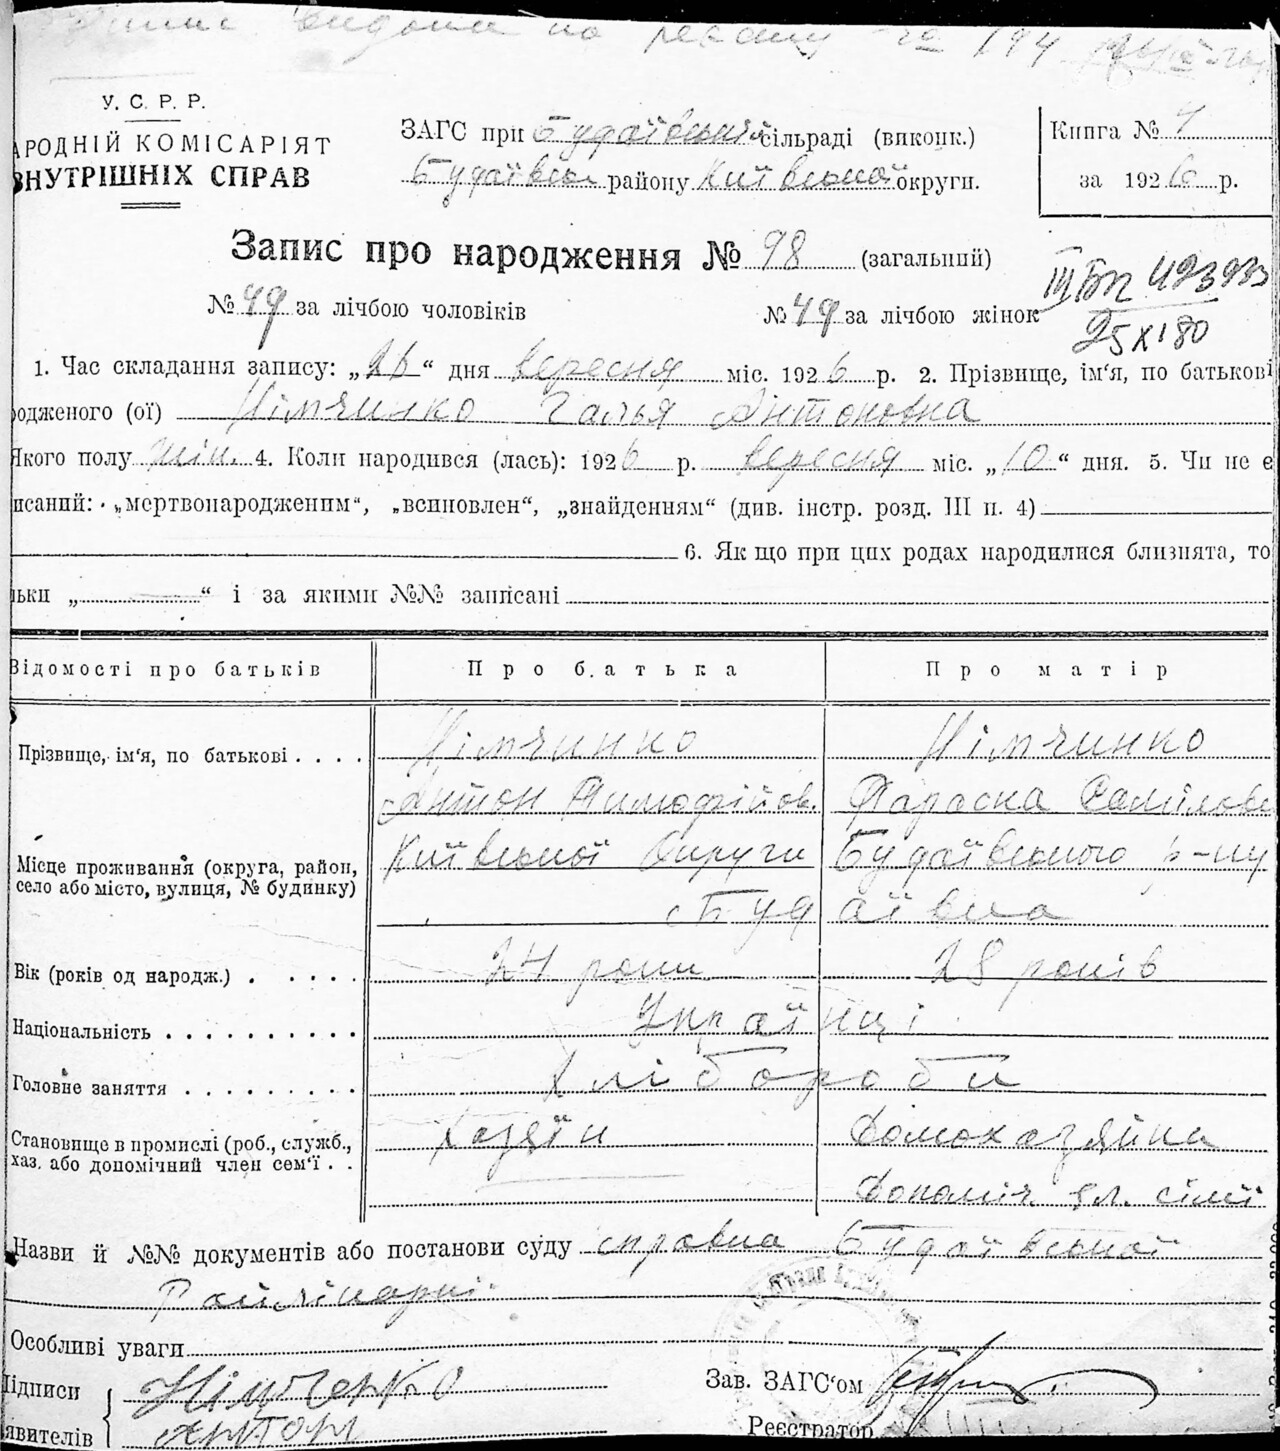 видана на
У. С. Р. Р.
АРОДНІЙ КОМІСАРІЯТ
ВНУТРІШНІХ СПРАВ
ЗАГС при Будаївській сільраді (виконк.)
Будаївськ району Київської округи.
Книга № 4
за 1926 р.
Запис про народження № 98 (загальний)
ІІІ БК 493933
25 XI 80
№ 49 за лічбою чоловіків № 49 за лічбою жінок
1. Час складання запису: „26“ дня вересня міс. 1926 р. 2. Прізвище, ім'я, по батькові
родженого (ої) Німчинко Галья Антоновна
Якого полу жін. 4. Коли народився (лась): 1926 р. вересня міс. „10“ дня. 5. Чи не є
писаний: „мертвонародженим“, „всиновлен“, „знайденням“ (див. інстр. розд. III п. 4)
6. Як що при цих родах народилися близнята, то
льки „ “ і за якими №№ записані
Відомості про батьків Про батька Про матір
Прізвище, ім'я, по батькові . . . . Німчинко Німчинко
Антон Тимофійов. Параска Самілов
Місце проживання (округа, район, село або місто, вулиця, № будинку) Київської Округи Будаївського р-ну
с Будаївка
Вік (років од народж.) . . . . . 24 роки 28 років
Національність . . . . . . . . . . Українці
Головне заняття . . . . . . . . . Хлібороби
Становище в промислі (роб., служб., хаз. або допомічний член сем'ї . . Хазяїн Домохазяйка
Допоміч. чл. сімї
Назви й №№ документів або постанови суду справка Будаївської
Райлікарні
Особливі уваги
Підписи Німченко
явителів Антон
Зав. ЗАГС'ом
Реєстратор